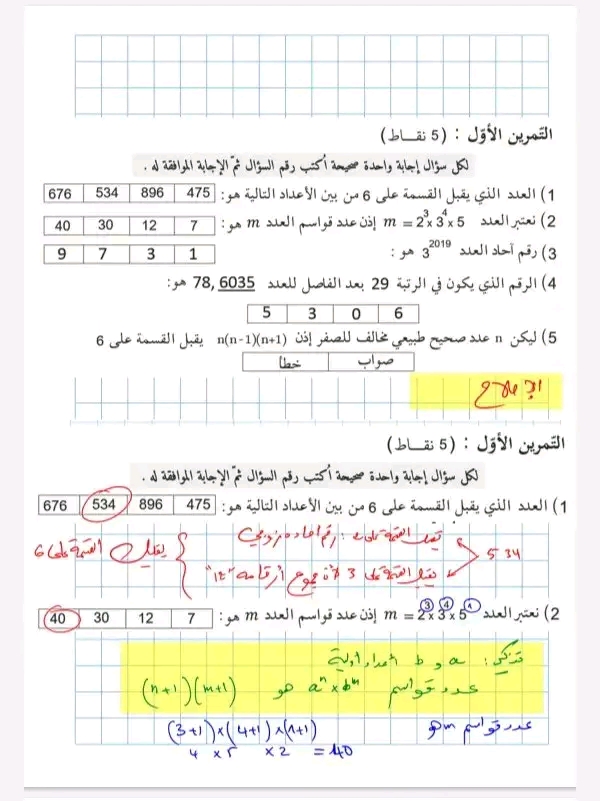 التمرين الأوّل : (5 نقــاط)
لكل سؤال إجابة واحدة صحيحة أكتب رقم السؤال ثمّ الإجابة الموافقة له .
1) العدد الذي يقبل القسمة على 6 من بين الأعداد التالية هو: 475 896 534 676
2) نعتبر العدد m = 2³x 3⁴x 5 إذن عدد قواسم العدد m هو: 7 12 30 40
3) رقم آحاد العدد 3²⁰¹⁹ هو : 1 3 7 9
4) الرقم الذي يكون في الرتبة 29 بعد الفاصل للعدد 78,6035 هو:
6 0 3 5
5) ليكن n عدد صحيح طبيعي مخالف للصفر إذن n(n-1)(n+1) يقبل القسمة على 6
صواب خطأ
الإصلاح
التمرين الأوّل : (5 نقــاط)
لكل سؤال إجابة واحدة صحيحة أكتب رقم السؤال ثمّ الإجابة الموافقة له .
1) العدد الذي يقبل القسمة على 6 من بين الأعداد التالية هو: 475 896 534 676
يقبل القسمة على 2 : رقم آحاده زوجي
534 يقبل القسمة على 6
يقبل القسمة على 3 لأن مجموع أرقامه "12"
2) نعتبر العدد m = 2³x 3⁴x 5¹ إذن عدد قواسم العدد m هو: 7 12 30 40
تذكير : a و b أعداد أولية
عدد قواسم aⁿ x bᵐ هو (n+1)(m+1)
عدد قواسم m هو
(3+1)x(4+1)x(1+1)
4 x 5 x 2 = 40